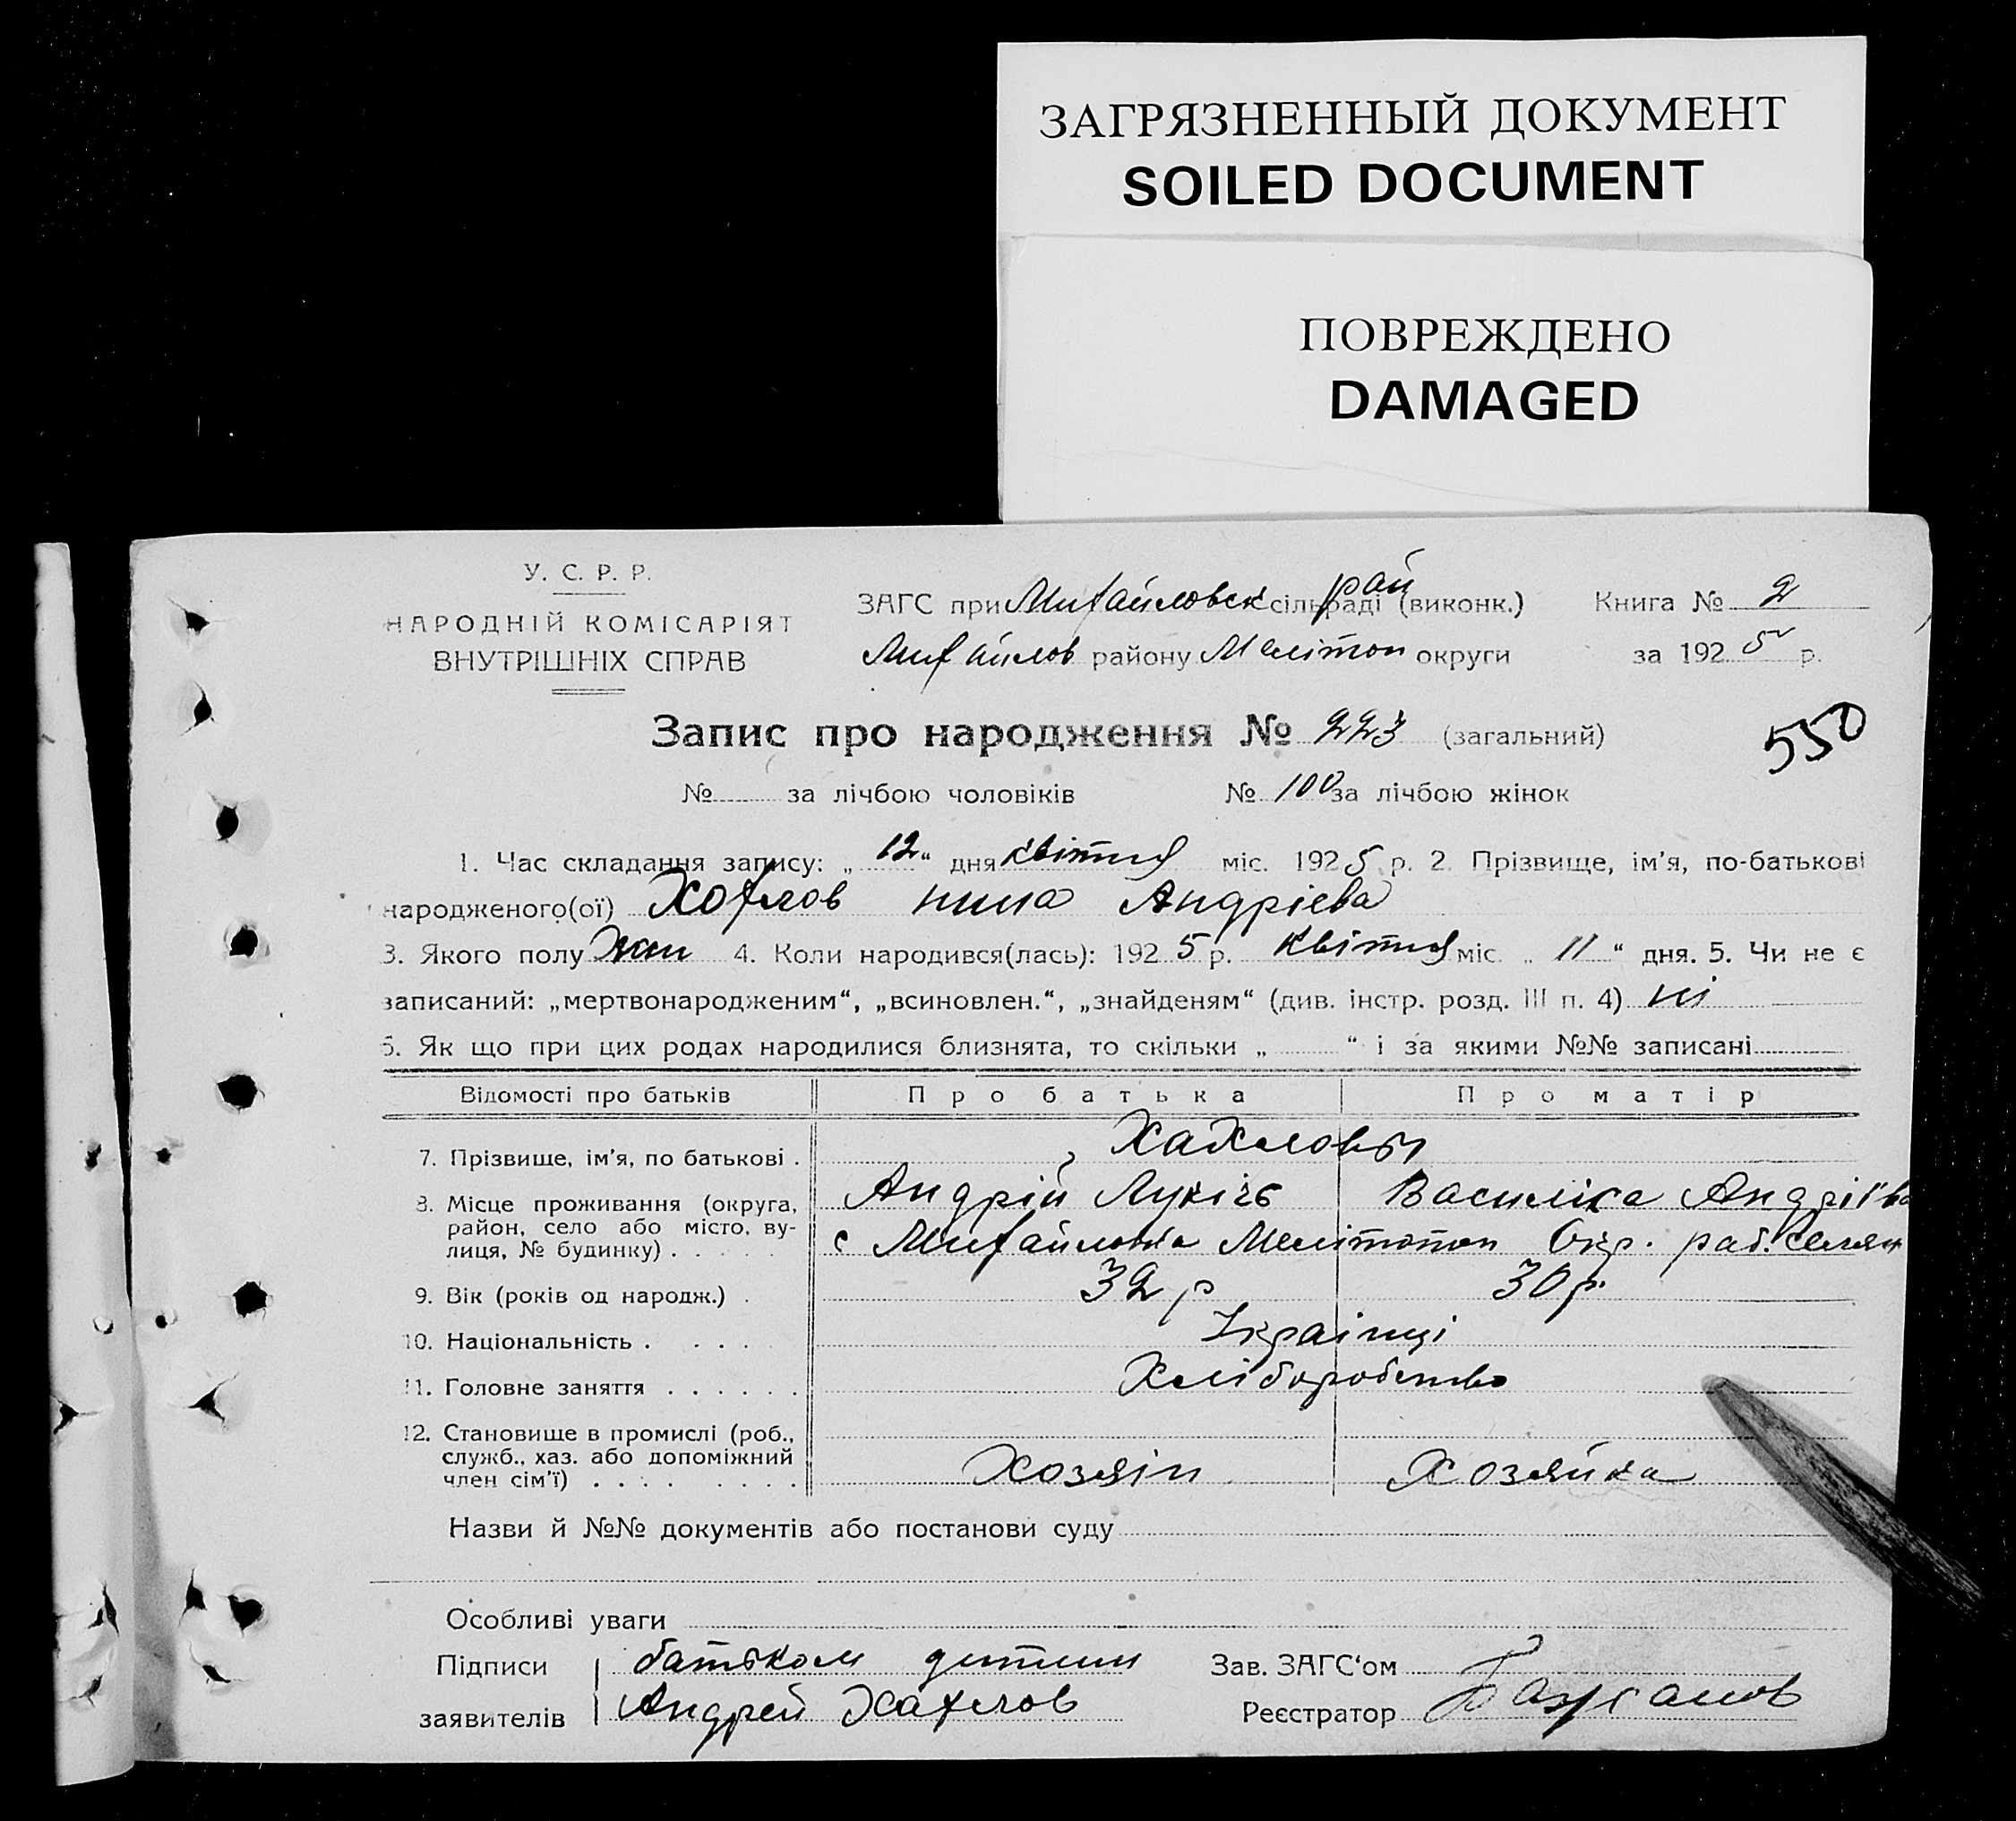 ЗАГРЯЗНЕННЫЙ ДОКУМЕНТ
SOILED DOCUMENT
ПОВРЕЖДЕНО
DAMAGED
У. С. Р. Р.
НАРОДНІЙ КОМІСАРІЯТ
ВНУТРІШНІХ СПРАВ
ЗАГС при Михайловск сільраді рай (виконк.) Книга № 2
Михайлов району Мелітоп округи за 1925 р.
Запис про народження № 223 (загальний)
550
№ за лічбою чоловіків № 100 за лічбою жінок
1. Час складання запису: „12“ дня квітня міс. 1925 р. 2. Прізвище, ім'я, по-батькові
народженого(ої) Хохлов нина Андріева
3. Якого полу жін 4. Коли народився(лась): 1925 р. квітня міс. „11“ дня. 5. Чи не є
записаний: „мертвонародженим“, „всиновлен.“, „знайденям“ (див. інстр. розд. III п. 4) ні
6. Як що при цих родах народилися близнята, то скільки „ “ і за якими №№ записані
Відомості про батьків Про батька Про матір
7. Прізвище, ім'я, по батькові . Хахловы
Андрій Лукічь Василіса Андріїва
8. Місце проживання (округа, район, село або місто, ву-
лиця, № будинку) . . . . . с Михайловка Мелітопол Окр. рад. селян
9. Вік (років од народж.) . 32 р 30 р.
10. Національність . . . . . Українці
11. Головне заняття . . . . . . Хліборобство
12. Становище в промислі (роб.,
служб., хаз. або допоміжний
член сім'ї) . . . . . . . . Хозяін Хозяйка
Назви й №№ документів або постанови суду
Особливі уваги
Підписи батьком дитини Зав. ЗАГС'ом
заявителів Андрей Хахлов Реєстратор Бажанов